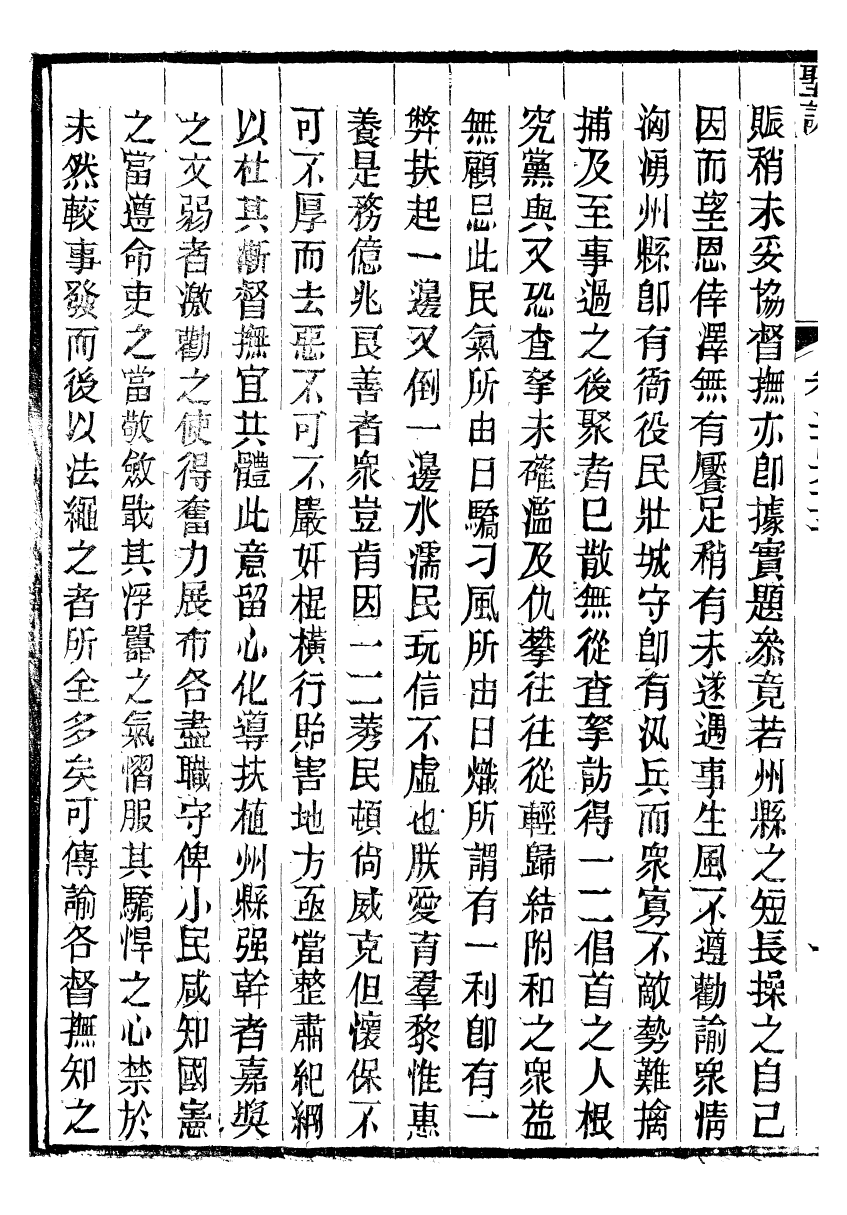 聖訓
賑稍未妥協督撫亦卽據實題叅竟若州縣之短長操之自己
因而望恩倖澤無有饜足稍有未遂遇事生風不遵勸諭衆情
洶湧州縣卽有衙役民壯城守卽有汛兵而衆寡不敵勢難擒
捕及至事過之後聚者已散無從查拏訪得一二倡首之人根
究黨與又恐查拏未確濫及仇攀往往從輕歸結附和之衆益
無顧忌此民氣所由日驕刁風所由日熾所謂有一利卽有一
弊扶起一邊又倒一邊水濡民玩信不虛也朕愛育羣黎惟惠
養是務億兆良善者衆豈肯因一二莠民頓尙威克但懷保不
可不厚而去惡不可不嚴奸棍橫行貽害地方亟當整肅紀綱
以杜其漸督撫宜共體此意留心化導扶植州縣强幹者嘉奬
之文弱者激勸之使得奮力展布各盡職守俾小民咸知國憲
之當遵命吏之當敬斂戢其浮囂之氣慴服其驕悍之心禁於
未然較事發而後以法繩之者所全多矣可傳諭各督撫知之